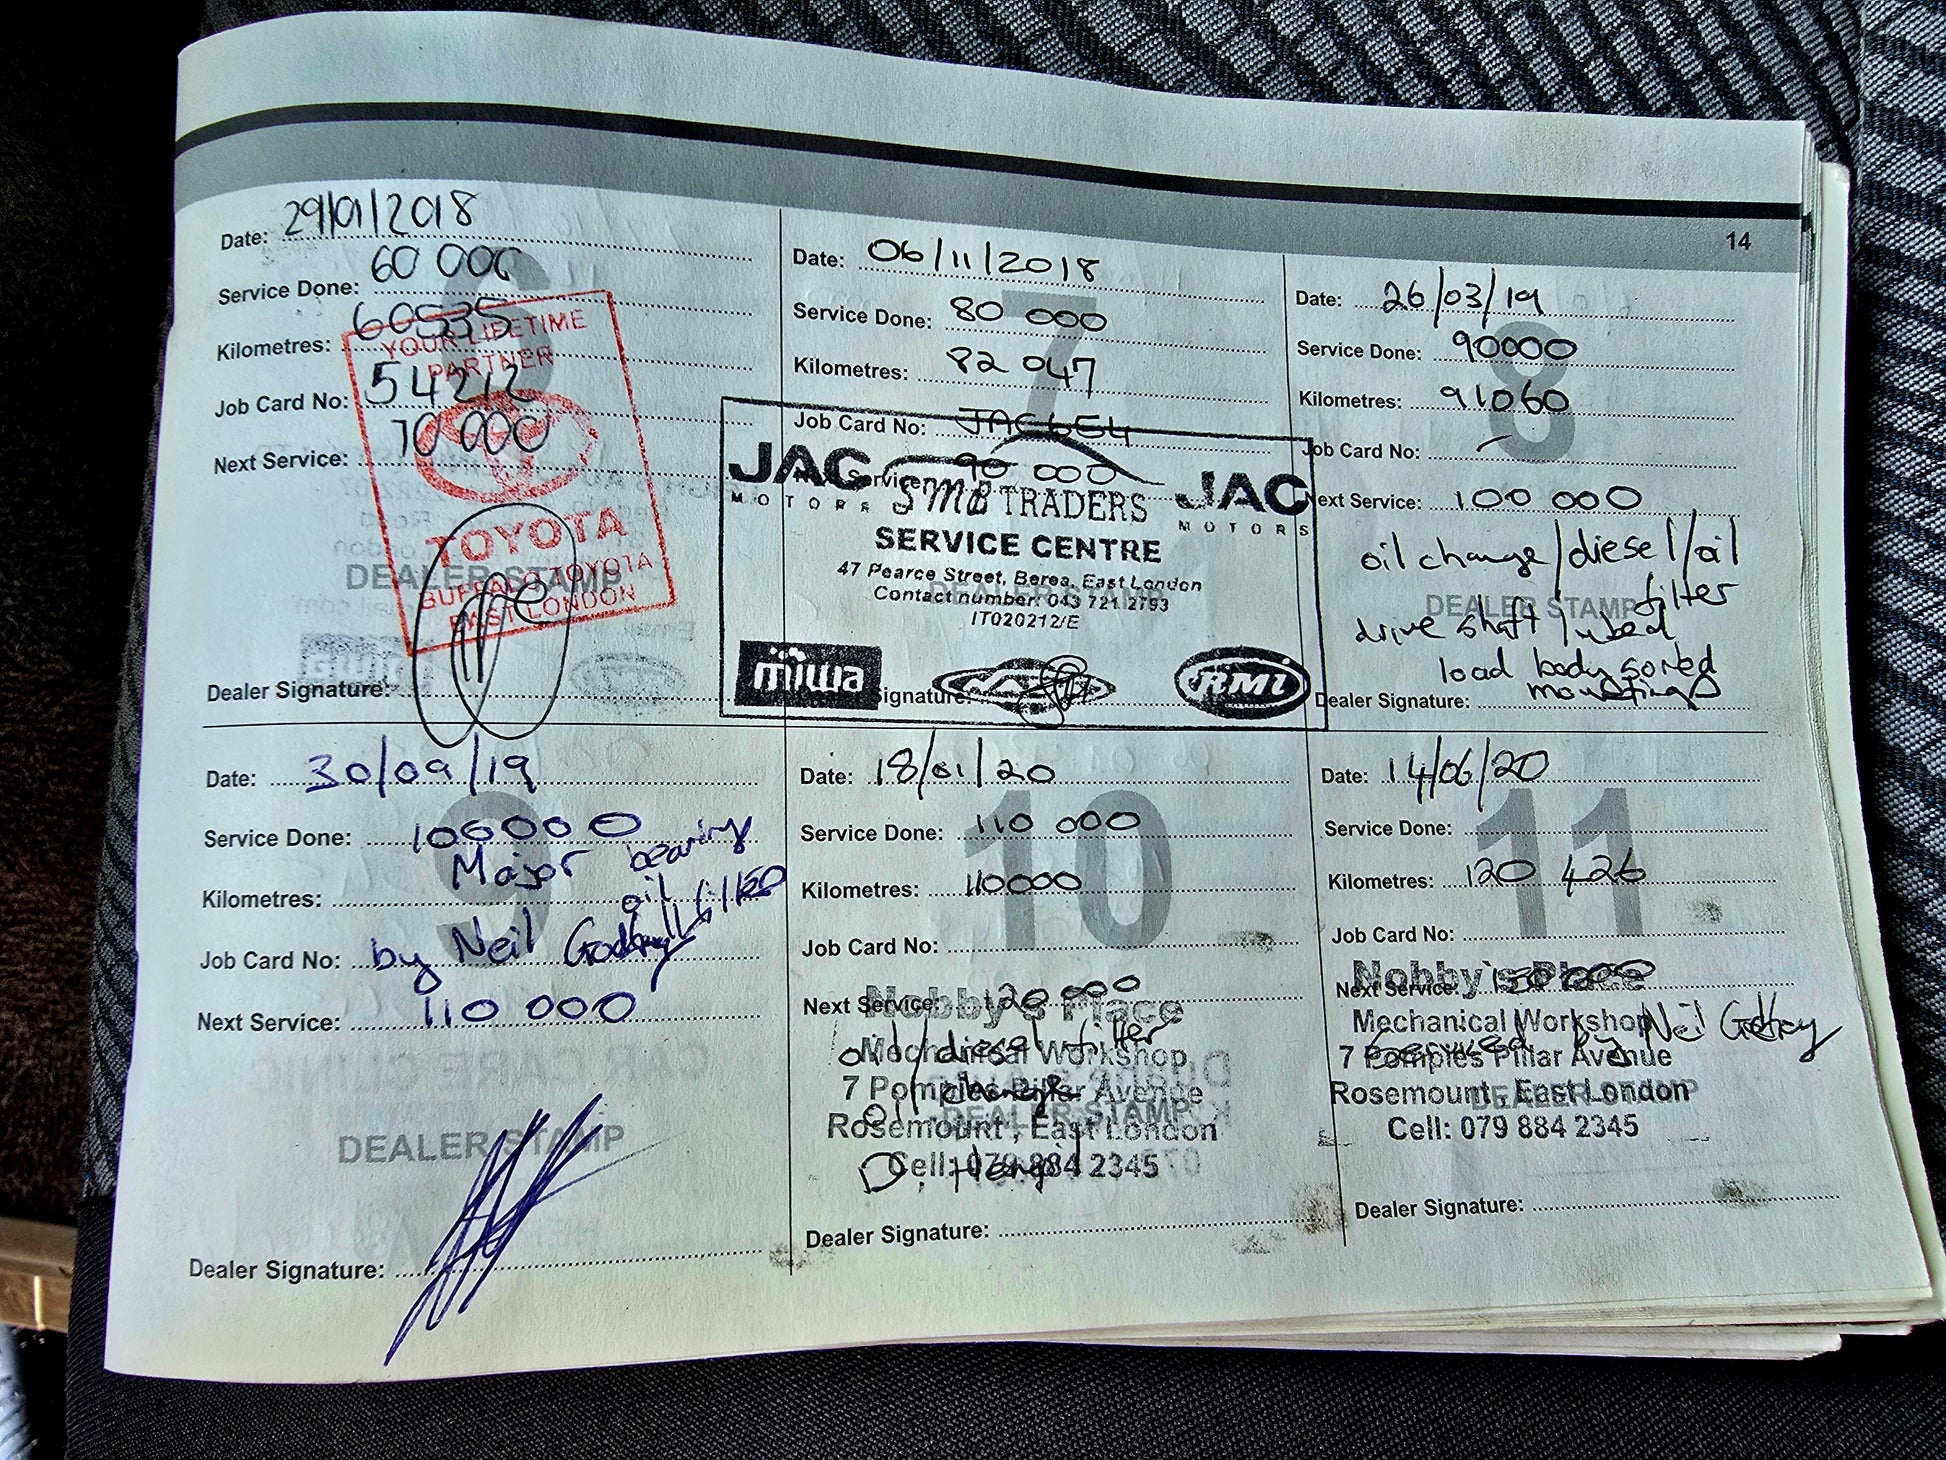 14
6
Date: 29/01/2018
Service Done: 60 000
Kilometres: 60535
Job Card No: 54212
Next Service: 70 000
YOUR LIFETIME
PARTNER
TOYOTA
BUFFALO TOYOTA
EAST LONDON
DEALER STAMP
Dealer Signature:
7
Date: 06/11/2018
Service Done: 80 000
Kilometres: 82 047
Job Card No:
90 000
JAC MOTORS
SMB TRADERS
JAC MOTORS
SERVICE CENTRE
47 Pearce Street, Berea, East London
Contact number: 043 721 2793
IT020212/E
DEALER STAMP
miwa
RMI
Signature:
8
Date: 26/03/19
Service Done: 90000
Kilometres: 91060
Job Card No: -
Next Service: 100 000
oil change/diesel/oil
filter
DEALER STAMP
drive shaft lubed
load body sorted
mountings
Dealer Signature:
9
Date: 30/09/19
Service Done: 100000
Major bearing
Kilometres:
oil
Job Card No: by Neil
Next Service: 110 000
DEALER STAMP
Dealer Signature:
10
Date: 18/01/20
Service Done: 110 000
Kilometres: 110000
Job Card No:
Next Service: 120 000
Nobby's Place
oil/diesel filter
Mechanical Workshop
7 Pomples Pillar Avenue
DEALER STAMP
Rosemount, East London
Cell: 079 884 2345
Dealer Signature:
11
Date: 14/06/20
Service Done:
Kilometres: 120 426
Job Card No:
Nobby's Place
Next Service:
Mechanical Workshop
by Neil
7 Pomples Pillar Avenue
Rosemount, East London
DEALER STAMP
Cell: 079 884 2345
Dealer Signature: